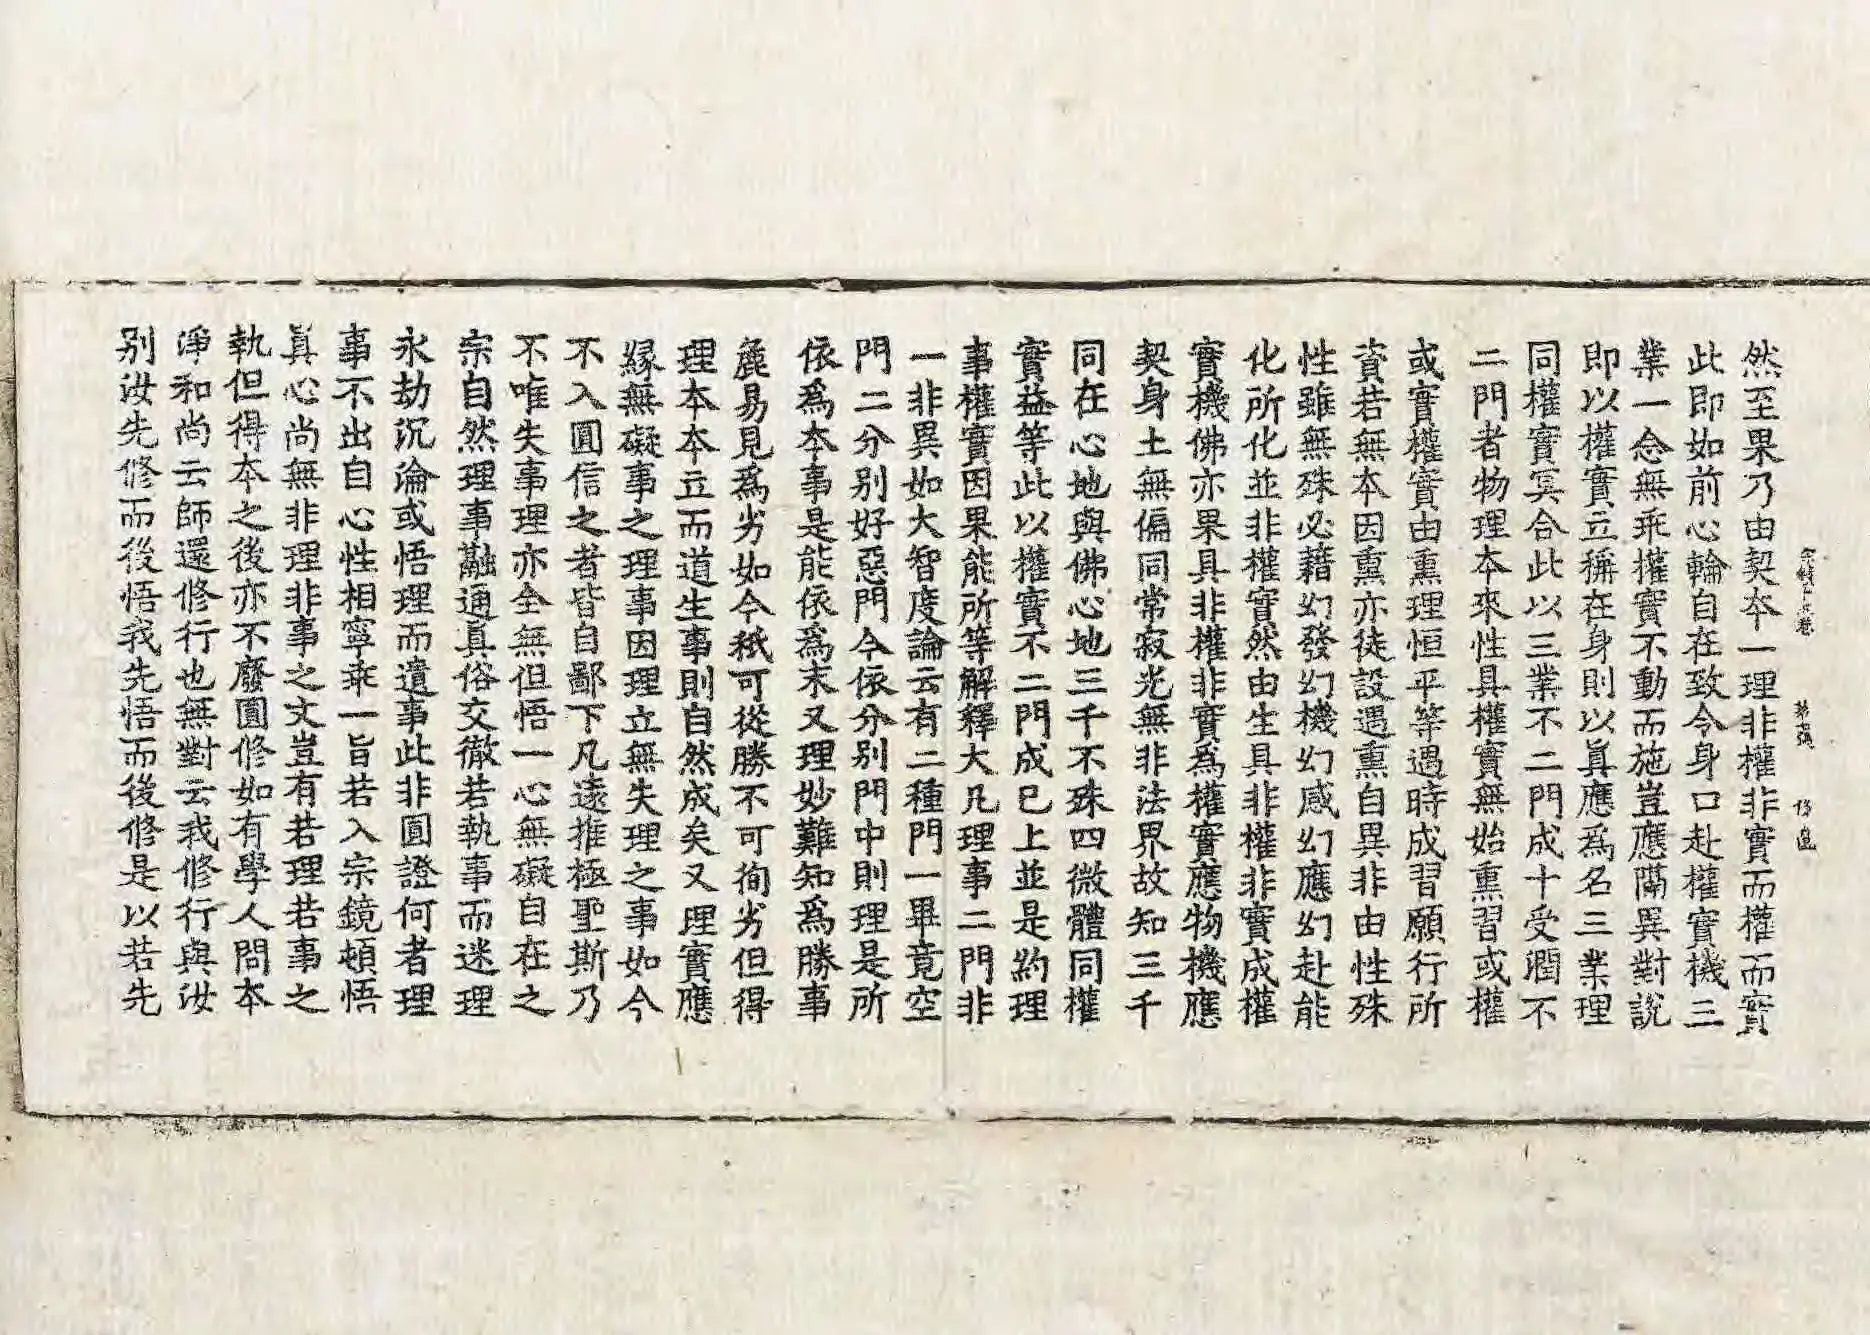 然至果乃由契本一理非權非實而權而實
此即如前心輪自在致令身口赴權實機三
業一念無乖權實不動而施豈應隔異對說
即以權實立稱在身則以眞應爲名三業理
同權實冥合此以三業不二門成十受潤不
二門者物理本來性具權實無始熏習或權
或實權實由熏理恒平等遇時成習願行所
資若無本因熏亦徒設遇熏自異非由性殊
性雖無殊必藉幻發幻機幻感幻應幻赴能
化所化並非權實然由生具非權非實成權
實機佛亦果具非權非實爲權實應物機應
契身土無偏同常寂光無非法界故知三千
同在心地與佛心地三千不殊四微體同權
實益等此以權實不二門成已上並是約理
事權實因果能所等解釋大凡理事二門非
一非異如大智度論云有二種門一畢竟空
門二分別好惡門今依分別門中則理是所
依爲本事是能依爲末又理妙難知爲勝事
麁易見爲劣如今秖可從勝不可徇劣但得
理本本立而道生事則自然成矣又理實應
緣無礙事之理事因理立無失理之事如今
不入圓信之者皆自鄙下凡遠推極聖斯乃
不唯失事理亦全無但悟一心無礙自在之
宗自然理事融通眞俗交徹若執事而迷理
永劫沉淪或悟理而遺事此非圓證何者理
事不出自心性相寧乖一旨若入宗鏡頓悟
眞心尚無非理非事之文豈有若理若事之
執但得本之後亦不廢圓修如有學人問本
淨和尚云師還修行也無對云我修行與汝
別汝先修而後悟我先悟而後修是以若先